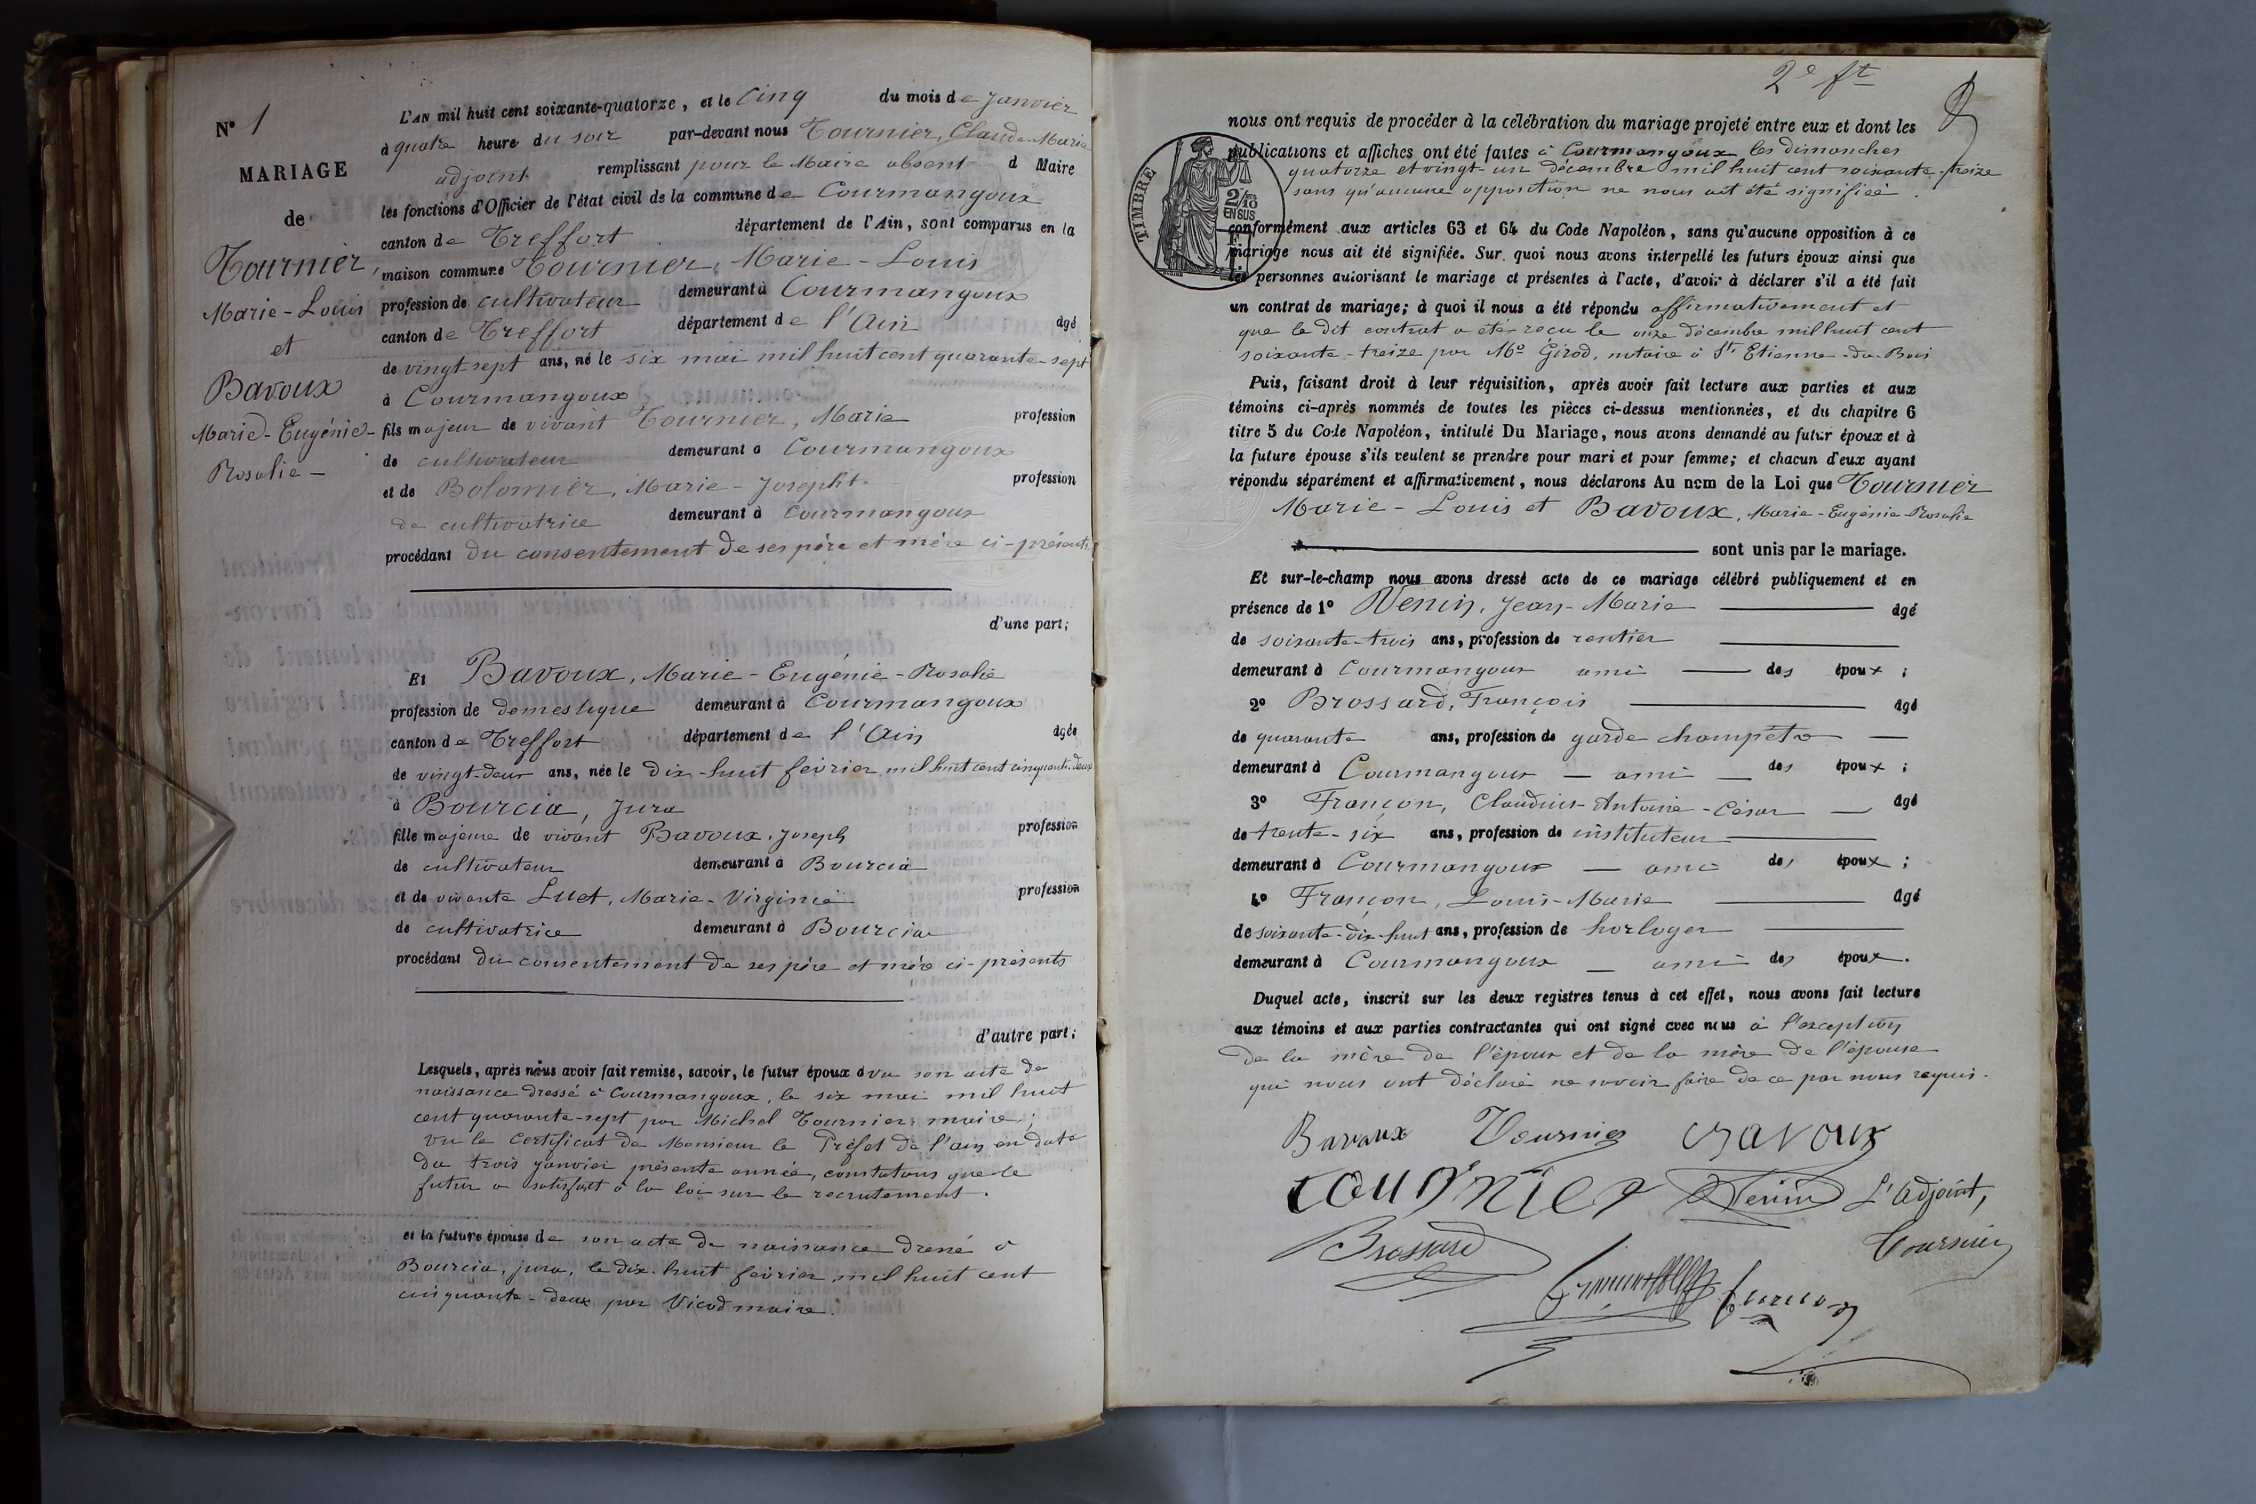 N° 1
MARIAGE
de
Tournier,
Marie-Louis
et
Bavoux
Marie-Eugénie-
Rosalie -
L'AN mil huit cent soixante-quatorze, et le Cinq du mois de Janvier
à quatre heure du soir par-devant nous Tournier, Claude-Marie
adjoint remplissant pour le Maire absent d Maire
les fonctions d'Officier de l'état civil de la commune de Courmangoux
canton de Treffort département de l'Ain, sont comparus en la
maison commune Tournier, Marie-Louis
profession de cultivateur demeurant à Courmangoux
canton de Treffort département de l'Ain âgé
de vingt-sept ans, né le six mai mil huit cent quarante-sept
à Courmangoux
fils majeur de vivant Tournier, Marie profession
de cultivateur demeurant à Courmangoux
et de Bolomier, Marie-Josephte profession
de cultivatrice demeurant à Courmangoux
procédant du consentement de ses père et mère ci-présents
d'une part;
Et Bavoux, Marie-Eugénie-Rosalie
profession de domestique demeurant à Courmangoux
canton de Treffort département de l'Ain âgée
de vingt-deux ans, née le dix-huit février mil huit cent cinquante-deux
à Bourcia, Jura
fille majeure de vivant Bavoux, Joseph profession
de cultivateur demeurant à Bourcia
et de vivante Luet, Marie-Virginie profession
de cultivatrice demeurant à Bourcia
procédant du consentement de ses père et mère ci-présents
d'autre part;
Lesquels, après nous avoir fait remise, savoir, le futur époux avu son acte de
naissance dressé à Courmangoux, le six mai mil huit
cent quarante-sept par Michel Tournier, maire;
vu le Certificat de Monsieur le Préfet de l'ain en date
du trois janvier présente année, constatons que le
futur a satisfait à la loi sur le recrutement.
et la future épouse de son acte de naissance dressé à
Bourcia, jura, le dix-huit février mil huit cent
cinquante-deux par Vicod maire.
2e ft
nous ont requis de procéder à la célébration du mariage projeté entre eux et dont les
publications et affiches ont été faites à Courmangoux les dimanches
quatorze et vingt-un décembre mil huit cent soixante-treize
sans qu'aucune opposition ne nous ait été signifiée.
TIMBRE
2/10
EN SUS
conformément aux articles 63 et 64 du Code Napoléon, sans qu'aucune opposition à ce
mariage nous ait été signifiée. Sur quoi nous avons interpellé les futurs époux ainsi que
les personnes autorisant le mariage et présentes à l'acte, d'avoir à déclarer s'il a été fait
un contrat de mariage; à quoi il nous a été répondu affirmativement et
que le dit contrat a été reçu le onze décembre mil huit cent
soixante-treize par Me Girod, notaire à St Etienne-du-Bois
Puis, faisant droit à leur réquisition, après avoir fait lecture aux parties et aux
témoins ci-après nommés de toutes les pièces ci-dessus mentionnées, et du chapitre 6
titre 5 du Code Napoléon, intitulé Du Mariage, nous avons demandé au futur époux et à
la future épouse s'ils veulent se prendre pour mari et pour femme; et chacun d'eux ayant
répondu séparément et affirmativement, nous déclarons Au nom de la Loi que Tournier
Marie-Louis et Bavoux, Marie-Eugénie-Rosalie
sont unis par le mariage.
Et sur-le-champ nous avons dressé acte de ce mariage célébré publiquement et en
présence de 1° Venin, Jean-Marie âgé
de soixante-trois ans, profession de rentier
demeurant à Courmangoux ami des époux;
2° Brossard, François âgé
de quarante ans, profession de garde champêtre
demeurant à Courmangoux - ami - des époux;
3° Françon, Claudius-Antoine-César - âgé
de trente-six ans, profession de instituteur
demeurant à Courmangoux - ami des époux;
4° Françon, Louis-Marie âgé
de soixante-dix-huit ans, profession de horloger
demeurant à Courmangoux - ami des époux.
Duquel acte, inscrit sur les deux registres tenus à cet effet, nous avons fait lecture
aux témoins et aux parties contractantes qui ont signé avec nous à l'exception
de la mère de l'époux et de la mère de l'épouse
qui nous ont déclaré ne savoir faire de ce par nous requis.
Bavoux Tournier Bavoux
tournier Venin L'adjoint,
Brossard Tournier
françon